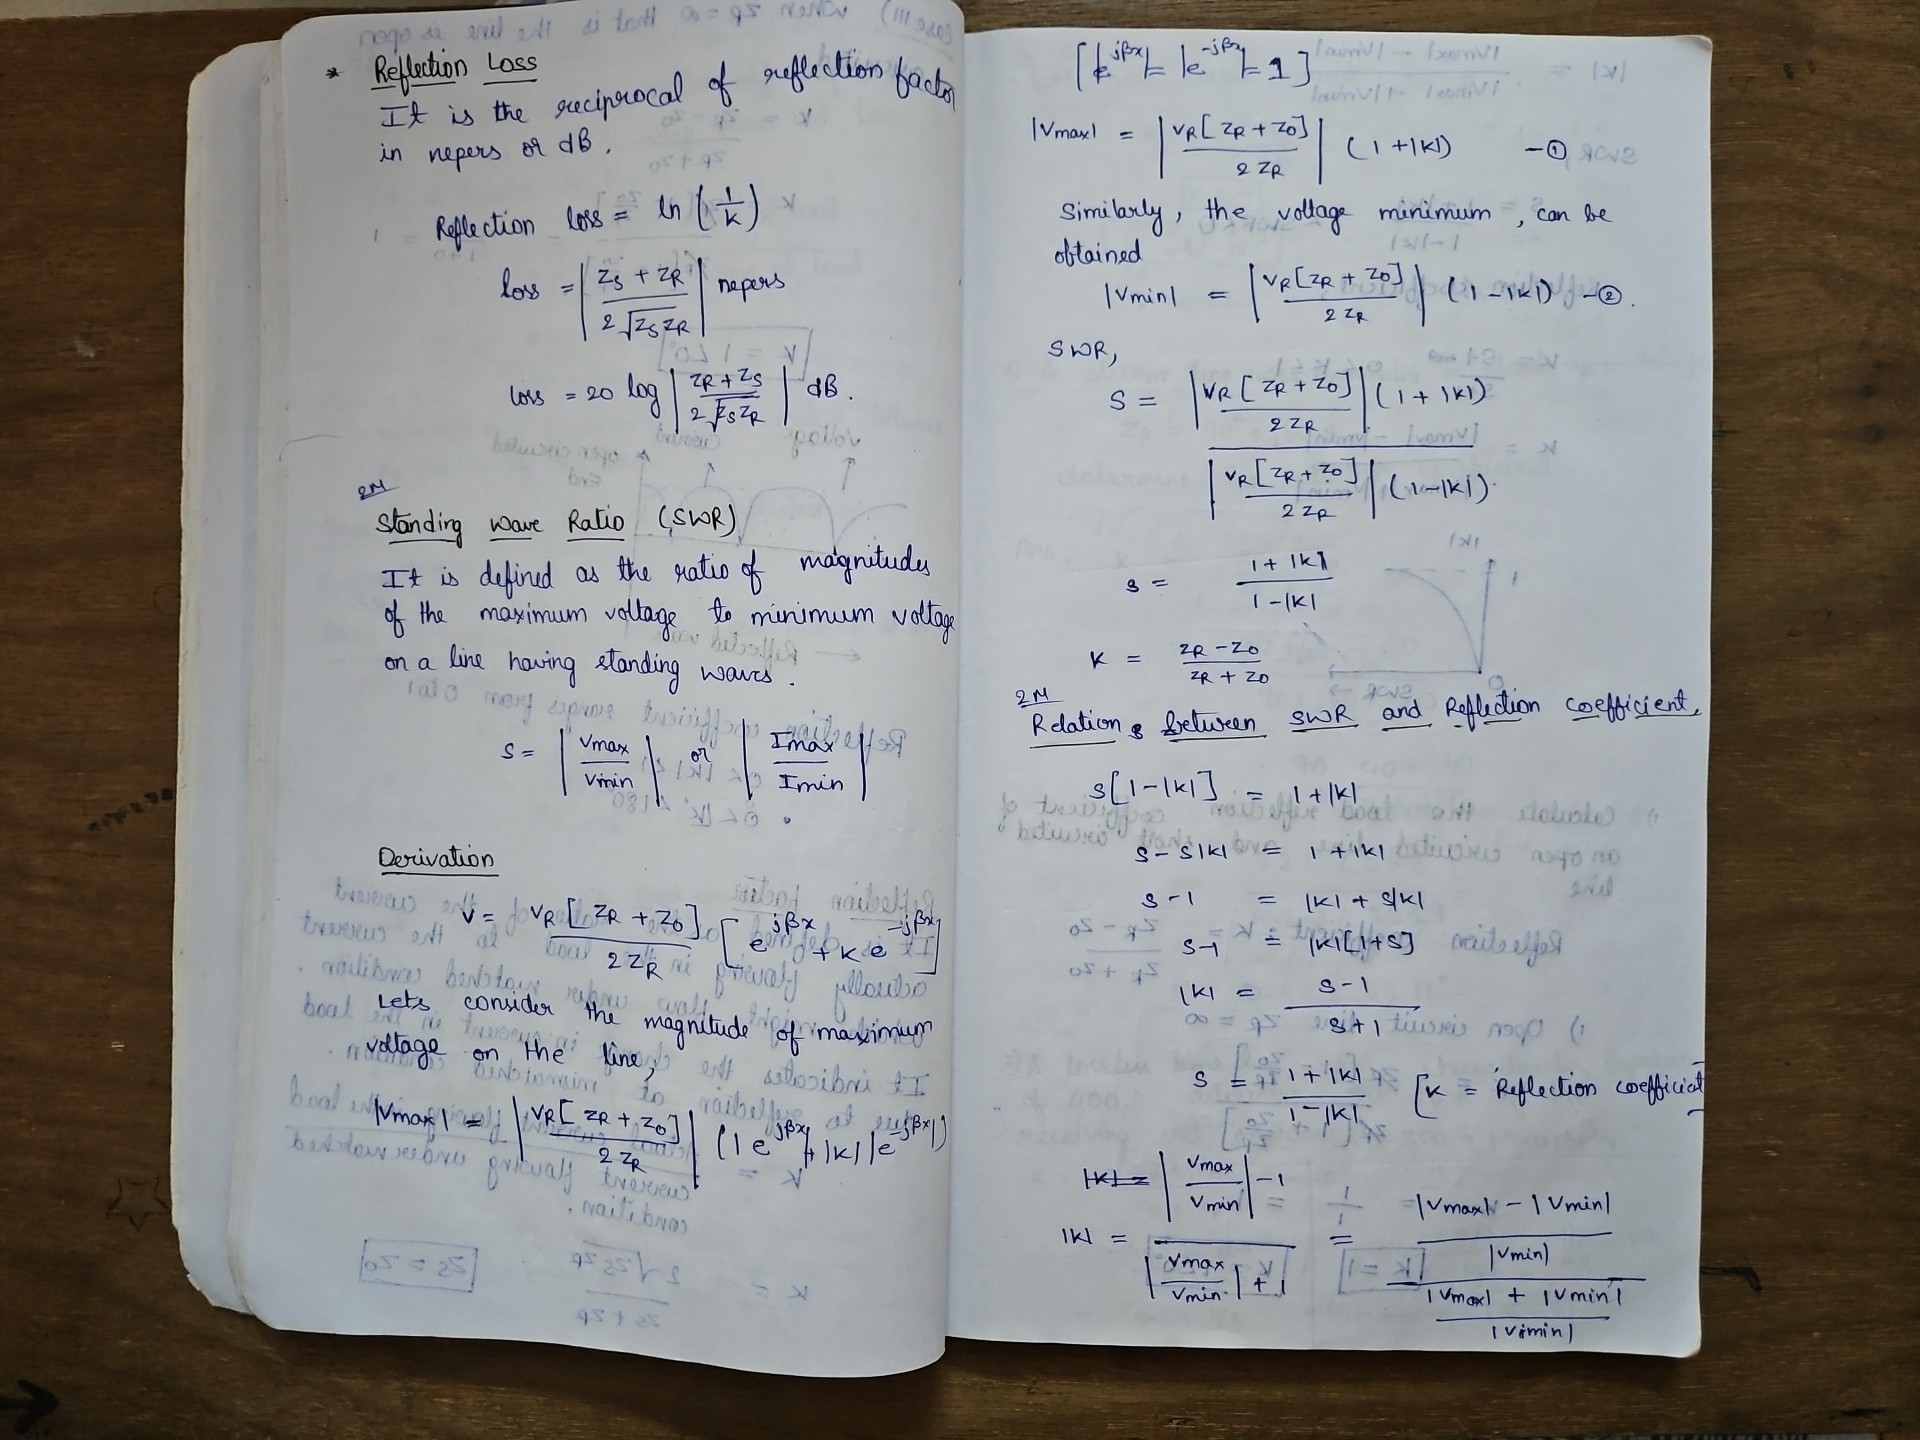 * Reflection Loss
It is the reciprocal of reflection factor
in nepers or dB.
Reflection loss = ln (1/k)
loss = | (ZS + ZR) / (2 √(ZS ZR)) | nepers
loss = 20 log | (ZR + ZS) / (2 √(ZS ZR)) | dB.
2M
Standing Wave Ratio (SWR)
It is defined as the ratio of magnitudes
of the maximum voltage to minimum voltage
on a line having standing waves.
S = | Vmax / Vmin | or | Imax / Imin |
Derivation
V = VR [ZR + Z0] / 2ZR [e^jβx + K e^-jβx]
Lets consider the magnitude of maximum
voltage on the line,
|Vmax| = | VR [ZR + Z0] / 2ZR | (|e^jβx| + |K| |e^-jβx|)
[|e^jβx| = |e^-jβx| = 1]
|Vmax| = | VR [ZR + Z0] / 2ZR | (1 + |K|) - ①
Similarly, the voltage minimum, can be
obtained
|Vmin| = | VR [ZR + Z0] / 2ZR | (1 - |K|) - ②.
SWR,
S = | VR [ZR + Z0] / 2ZR | (1 + |K|)
| VR [ZR + Z0] / 2ZR | (1 - |K|)
S = (1 + |K|) / (1 - |K|)
K = (ZR - Z0) / (ZR + Z0)
2M
Relations between SWR and Reflection coefficient,
S[1 - |K|] = 1 + |K|
S - S|K| = 1 + |K|
S - 1 = |K| + S|K|
S - 1 = |K|[1 + S]
|K| = (S - 1) / (S + 1)
S = (1 + |K|) / (1 - |K|) [K = Reflection coefficient
|K| =
|K| = (| Vmax / Vmin | - 1) / (| Vmax / Vmin | + 1) = ((|Vmax| - |Vmin|) / |Vmin|) / ((|Vmax| + |Vmin|) / |Vmin|)